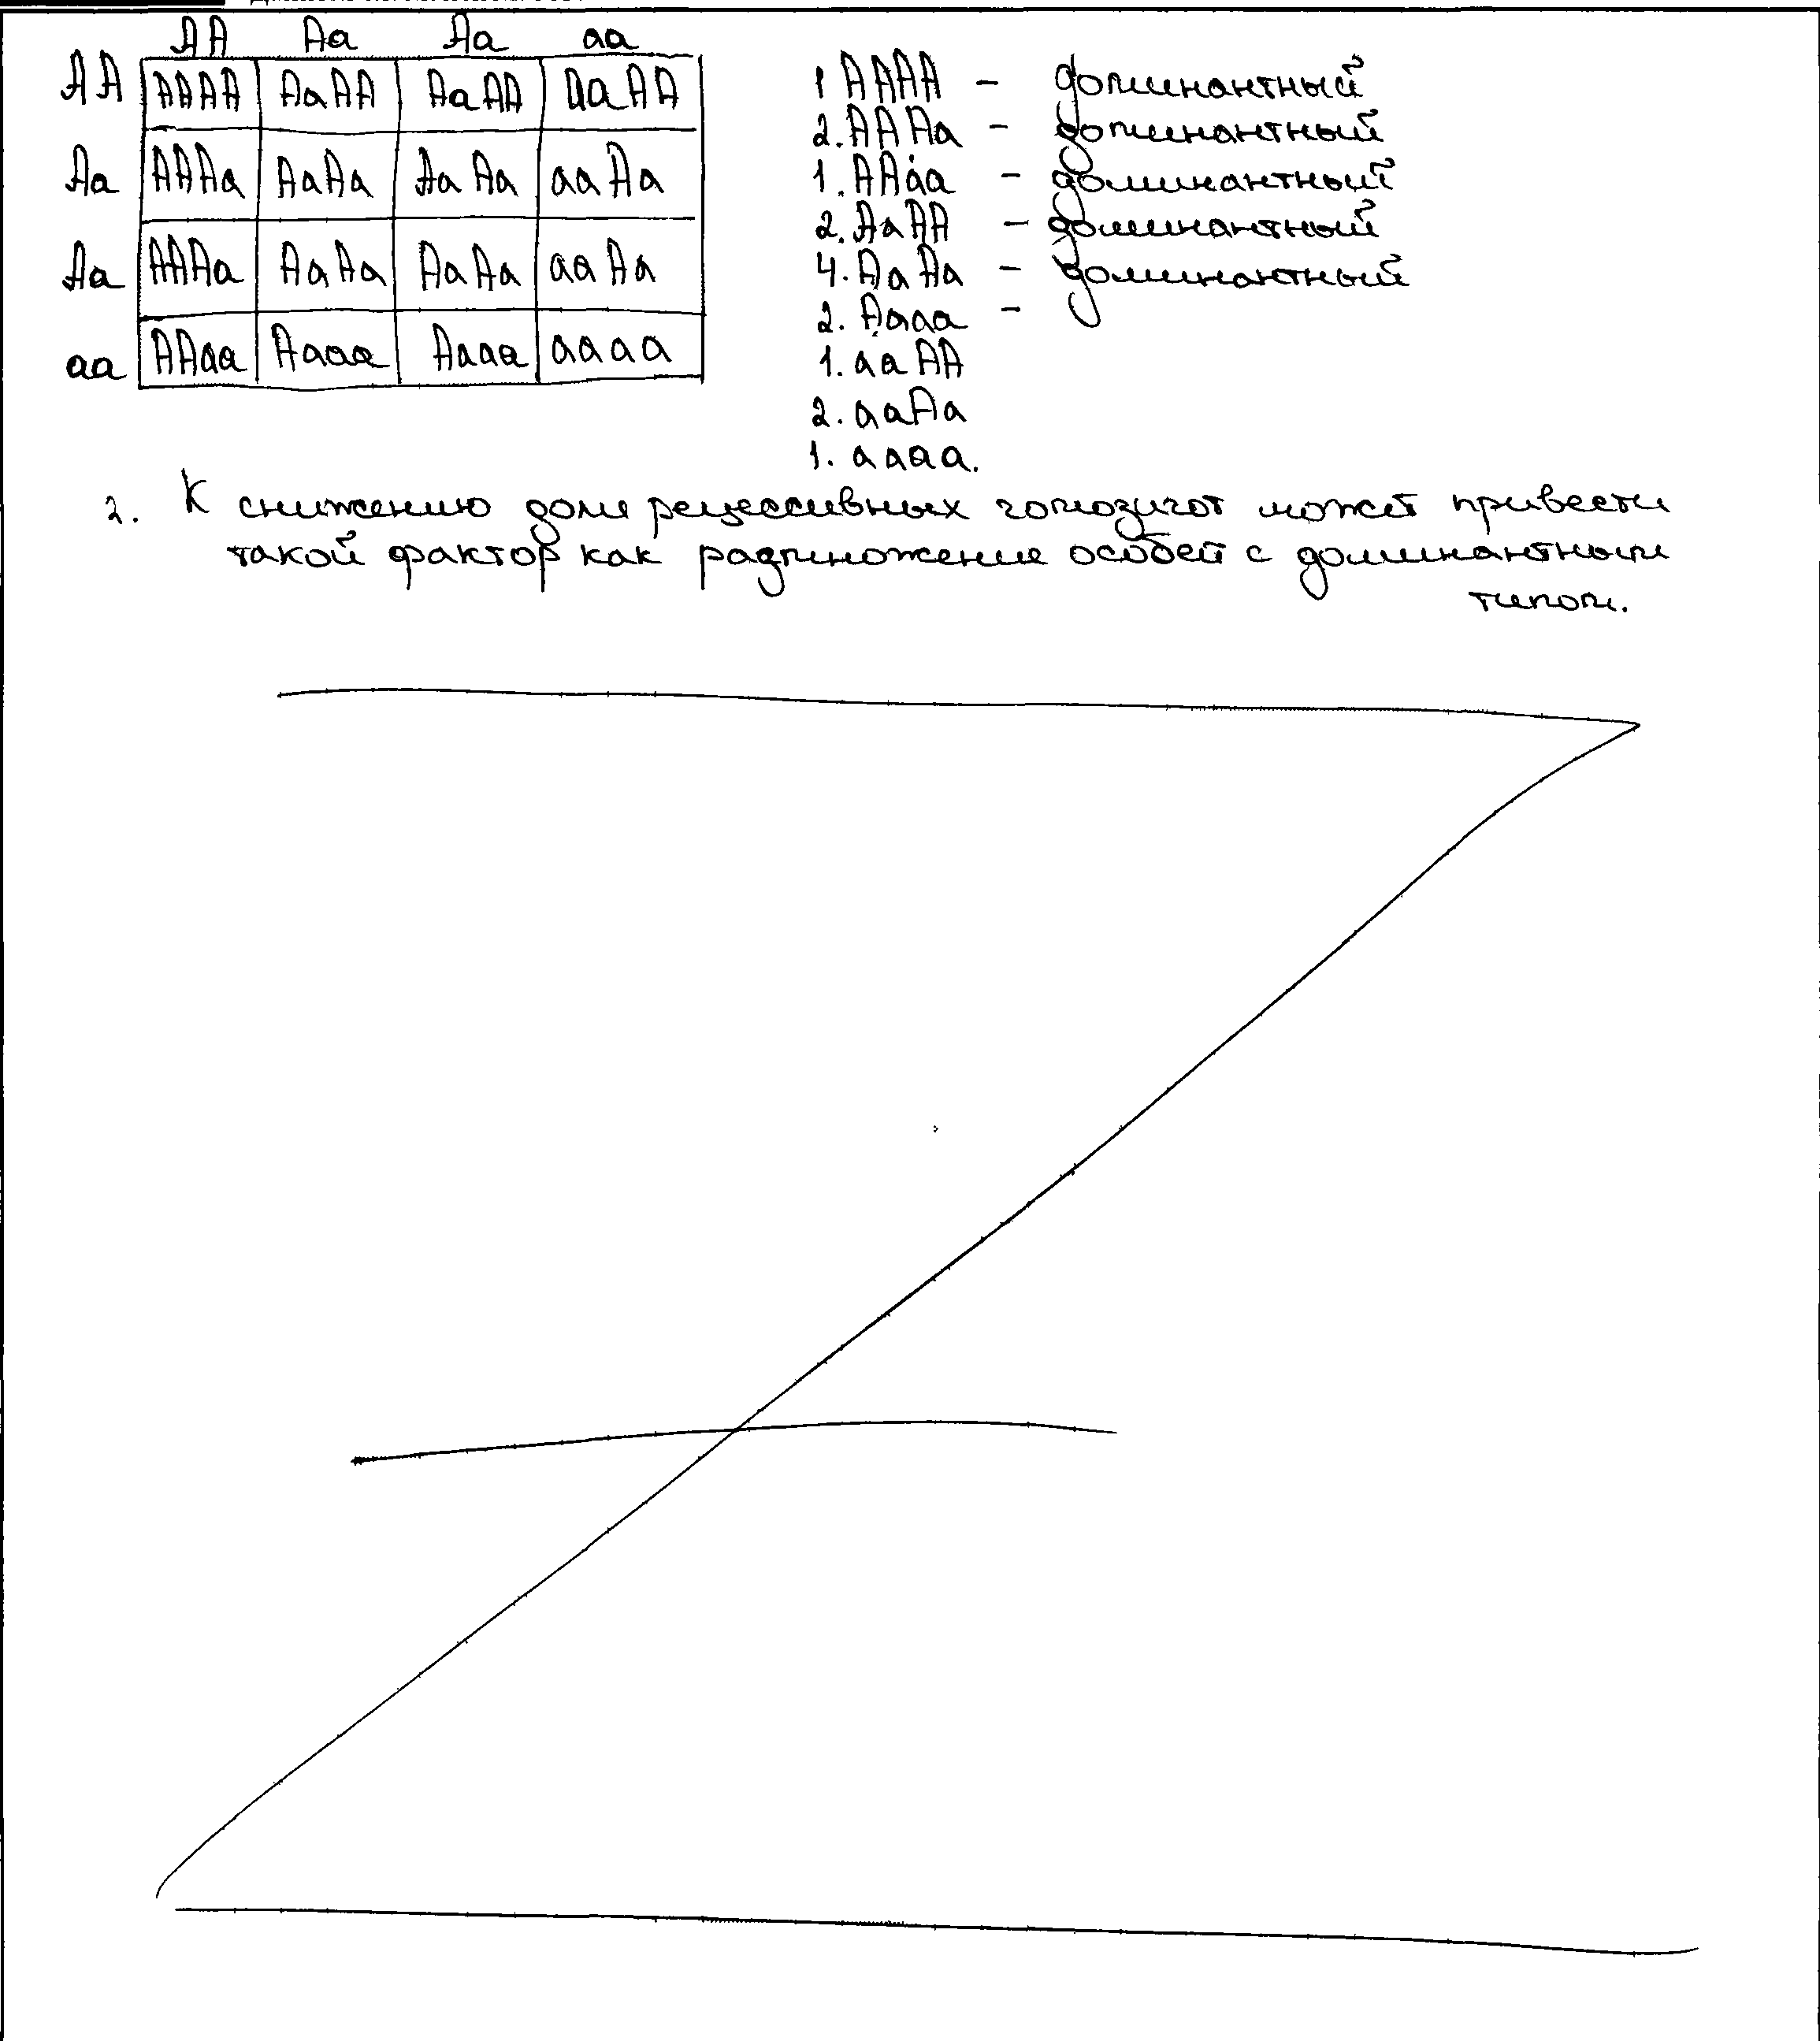 AA Aa Aa aa
AA AAAA AaAA AaAA aaAA
Aa AAAa AaAa AaAa aaAa
Aa AAAa AaAa AaAa aaAa
aa AAaa Aaaa Aaaa aaaa
1 AAAA - доминантный
2. AAAa - доминантный
1. AAaa - доминантный
2. AaAA - доминантный
4. AaAa - доминантный
2. Aaaa -
1. aaAA
2. aaAa
1. aaaa.
2. К снижению доли рецессивных гомозигот может привести
такой фактор как размножение особей с доминантным
типом.